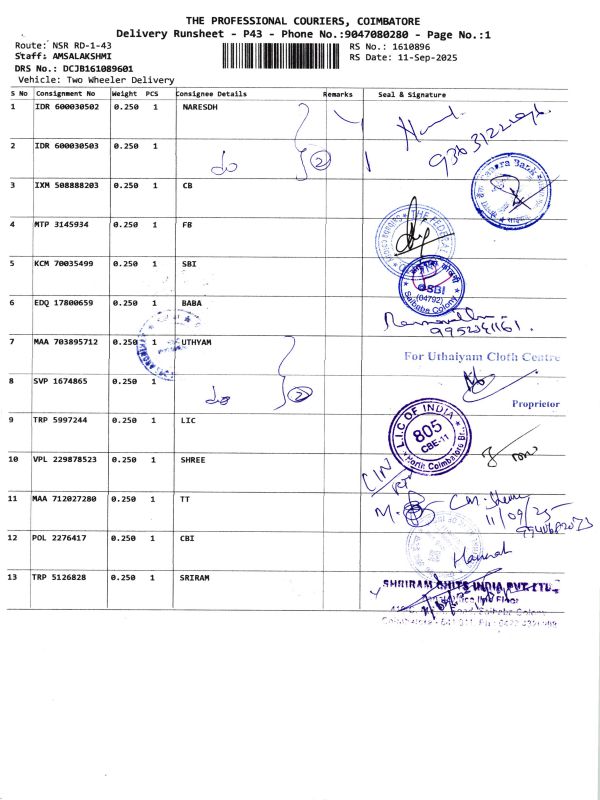 THE PROFESSIONAL COURIERS, COIMBATORE
Delivery Runsheet - P43 - Phone No.:9047080280 - Page No.:1
Route: NSR RD-1-43
RS No.: 1610896
Staff: AMSALAKSHMI
RS Date: 11-Sep-2025
DRS No.: DCJB161089601
Vehicle: Two Wheeler Delivery
S No Consignment No Weight PCS Consignee Details Remarks Seal & Signature
1 IDR 600030502 0.250 1 NARESDH
2 IDR 600030503 0.250 1
do 2
3 IXM 508888203 0.250 1 CB
Canara Bank
4 MTP 3145934 0.250 1 FB
THE FEDERAL
5 KCM 70035499 0.250 1 SBI
SBI
(64792)
Saibaba Colony
6 EDQ 17800659 0.250 1 BABA
9952041161.
7 MAA 703895712 0.250 1 UTHYAM
For Uthaiyam Cloth Centre
8 SVP 1674865 0.250 1
do 2
Proprietor
9 TRP 5997244 0.250 1 LIC
L.I.C OF INDIA
805
CBE-11
North Coimbatore Br.
10 VPL 229878523 0.250 1 SHREE
11 MAA 712027280 0.250 1 TT
11/09/25
12 POL 2276417 0.250 1 CBI
Hannah
13 TRP 5126828 0.250 1 SRIRAM
SHRIRAM CHITS INDIA PVT.LTD.